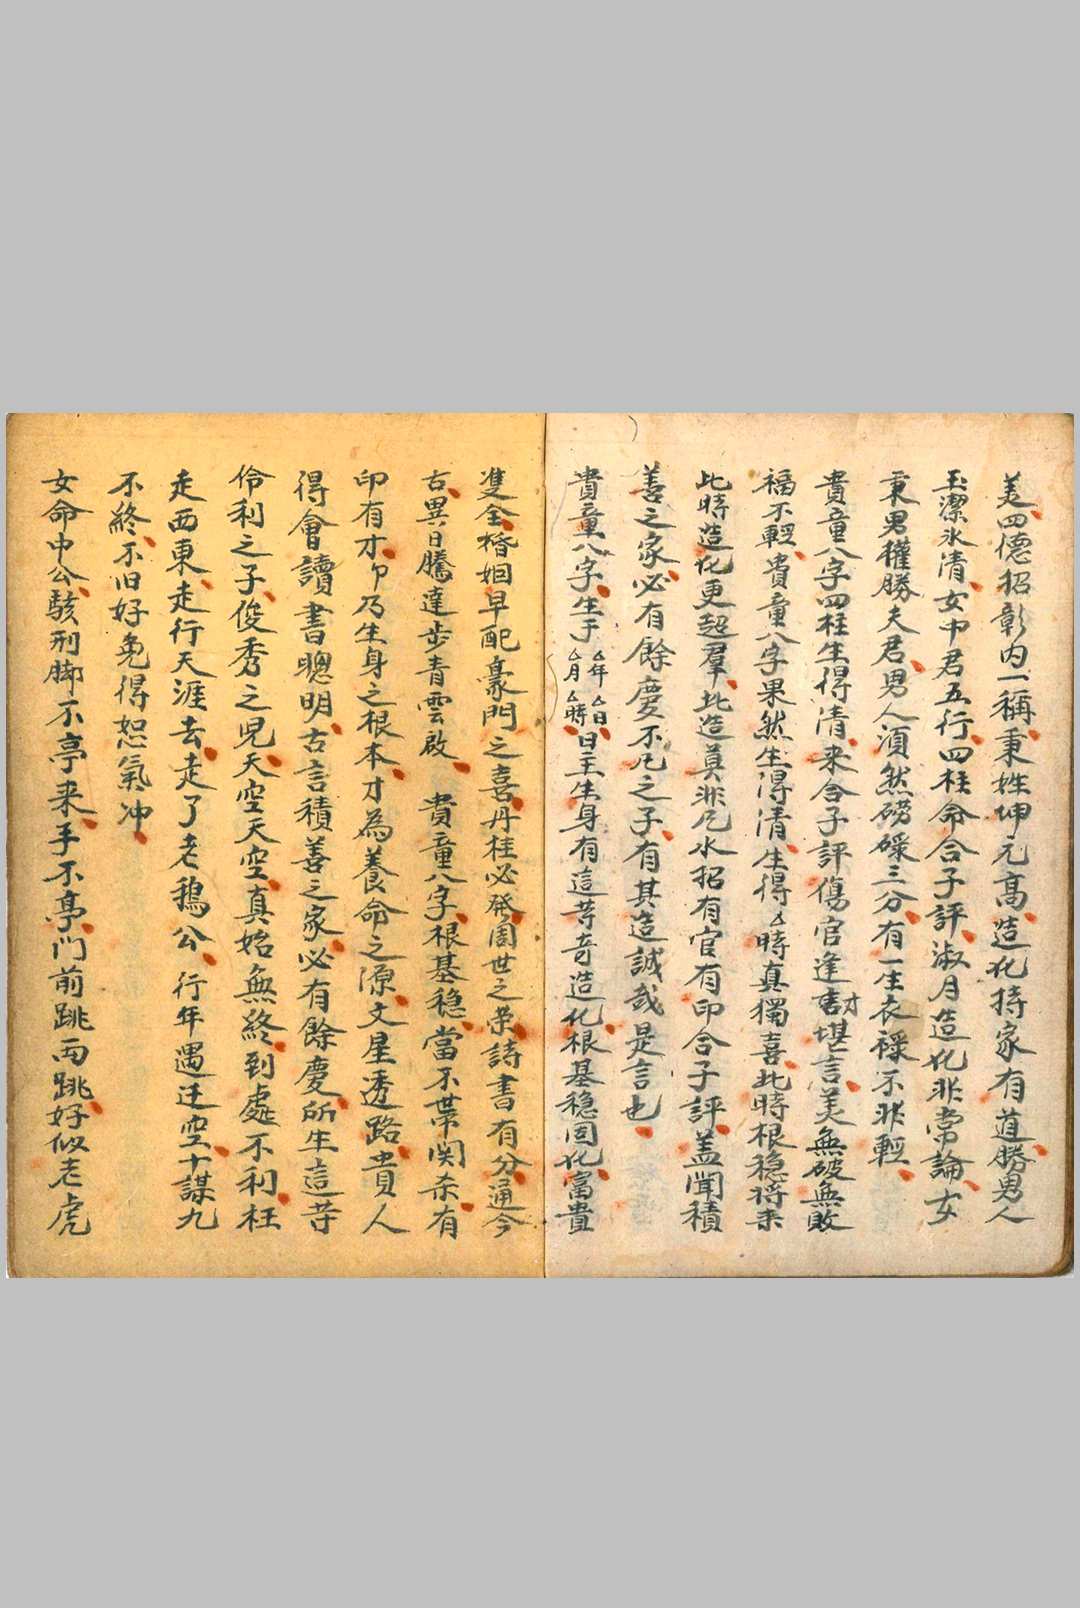 美四德招彰内一稱秉姓坤元高造化持家有道勝男人
玉潔氷清女中君五行四柱命合子評淑月造化非常論女
秉男權勝夫君男人湏然磅磜三分有一生衣禄不非輕
貴童八字四柱生得清来合子評傷官逢財堪言美無破無敗
福不輕貴童八字果然生得清生得厶時真獨喜此時根穏得来
此時造化更超羣此造真非凡水招有官有印合子評盖聞積
善之家必有餘慶不凡之子有其造誠哉是言也
貴童八字生于厶年厶月厶日厶時日主生身有這等奇造化根基穏固化富貴
隻全婚姻早配豪門之喜丹桂必發周世之荣詩書有分通今
古異日騰達步青雲啟 貴童八字根基穏當不帶関杀有
印有才卩乃生身之根本才為養命之源文星透路貴人
得會讀書聰明古言積善之家必有餘慶所生這等
伶利之子俊秀之児天空天空真始無終到處不利枉
走西東走行天涯去走了老鵝公行年遇迁空十謀九
不終不旧好兔得恕氣冲
女命中公駭刑脚不亭来手不亭門前跳西跳好似老虎